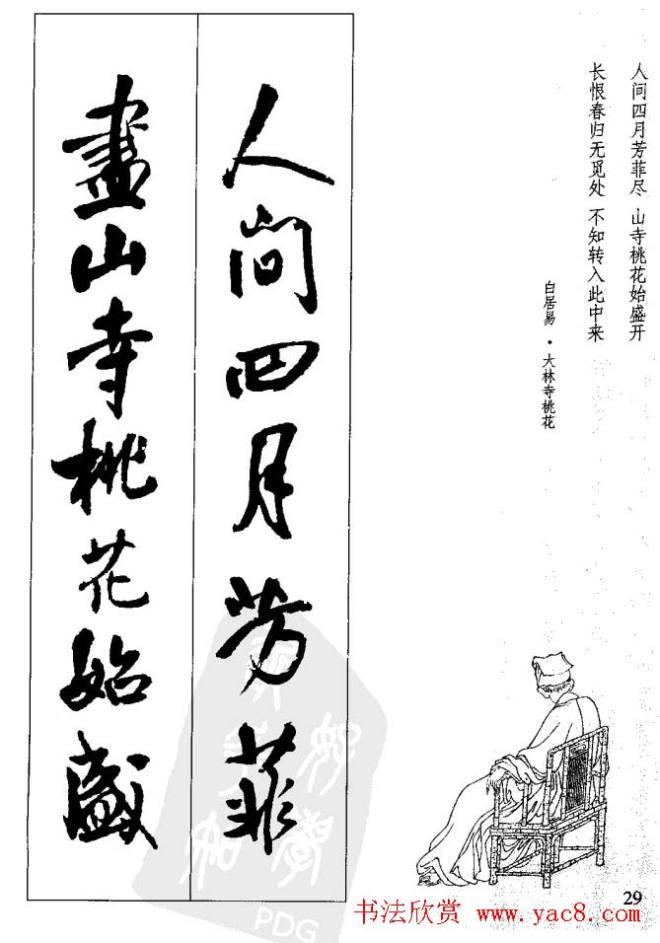 人间四月芳菲尽 山寺桃花始盛开
长恨春归无觅处 不知转入此中来
白居易·大林寺桃花
人间四月芳菲
盡山寺桃花始盛
29
PDG
书法欣赏 www.yac8.com